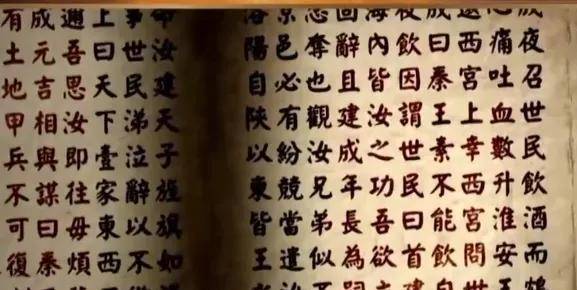 成夜召世民飲酒而
心痛吐血數升淮安王
西宮上幸西宮問世
成曰秦王素不能飲自
夜飲因謂世民曰首建
海內皆汝之功吾欲立
辭且建成年長為嗣
忍奪也觀汝兄弟似不
京邑必有紛競當遣
洛陽自陝以東皆王
命汝建天子旌旗如
事世民涕泣辭以不
上曰天下壹家東西
邇吾思汝即往毋煩
成元吉相與謀曰秦
有土地甲兵不可復